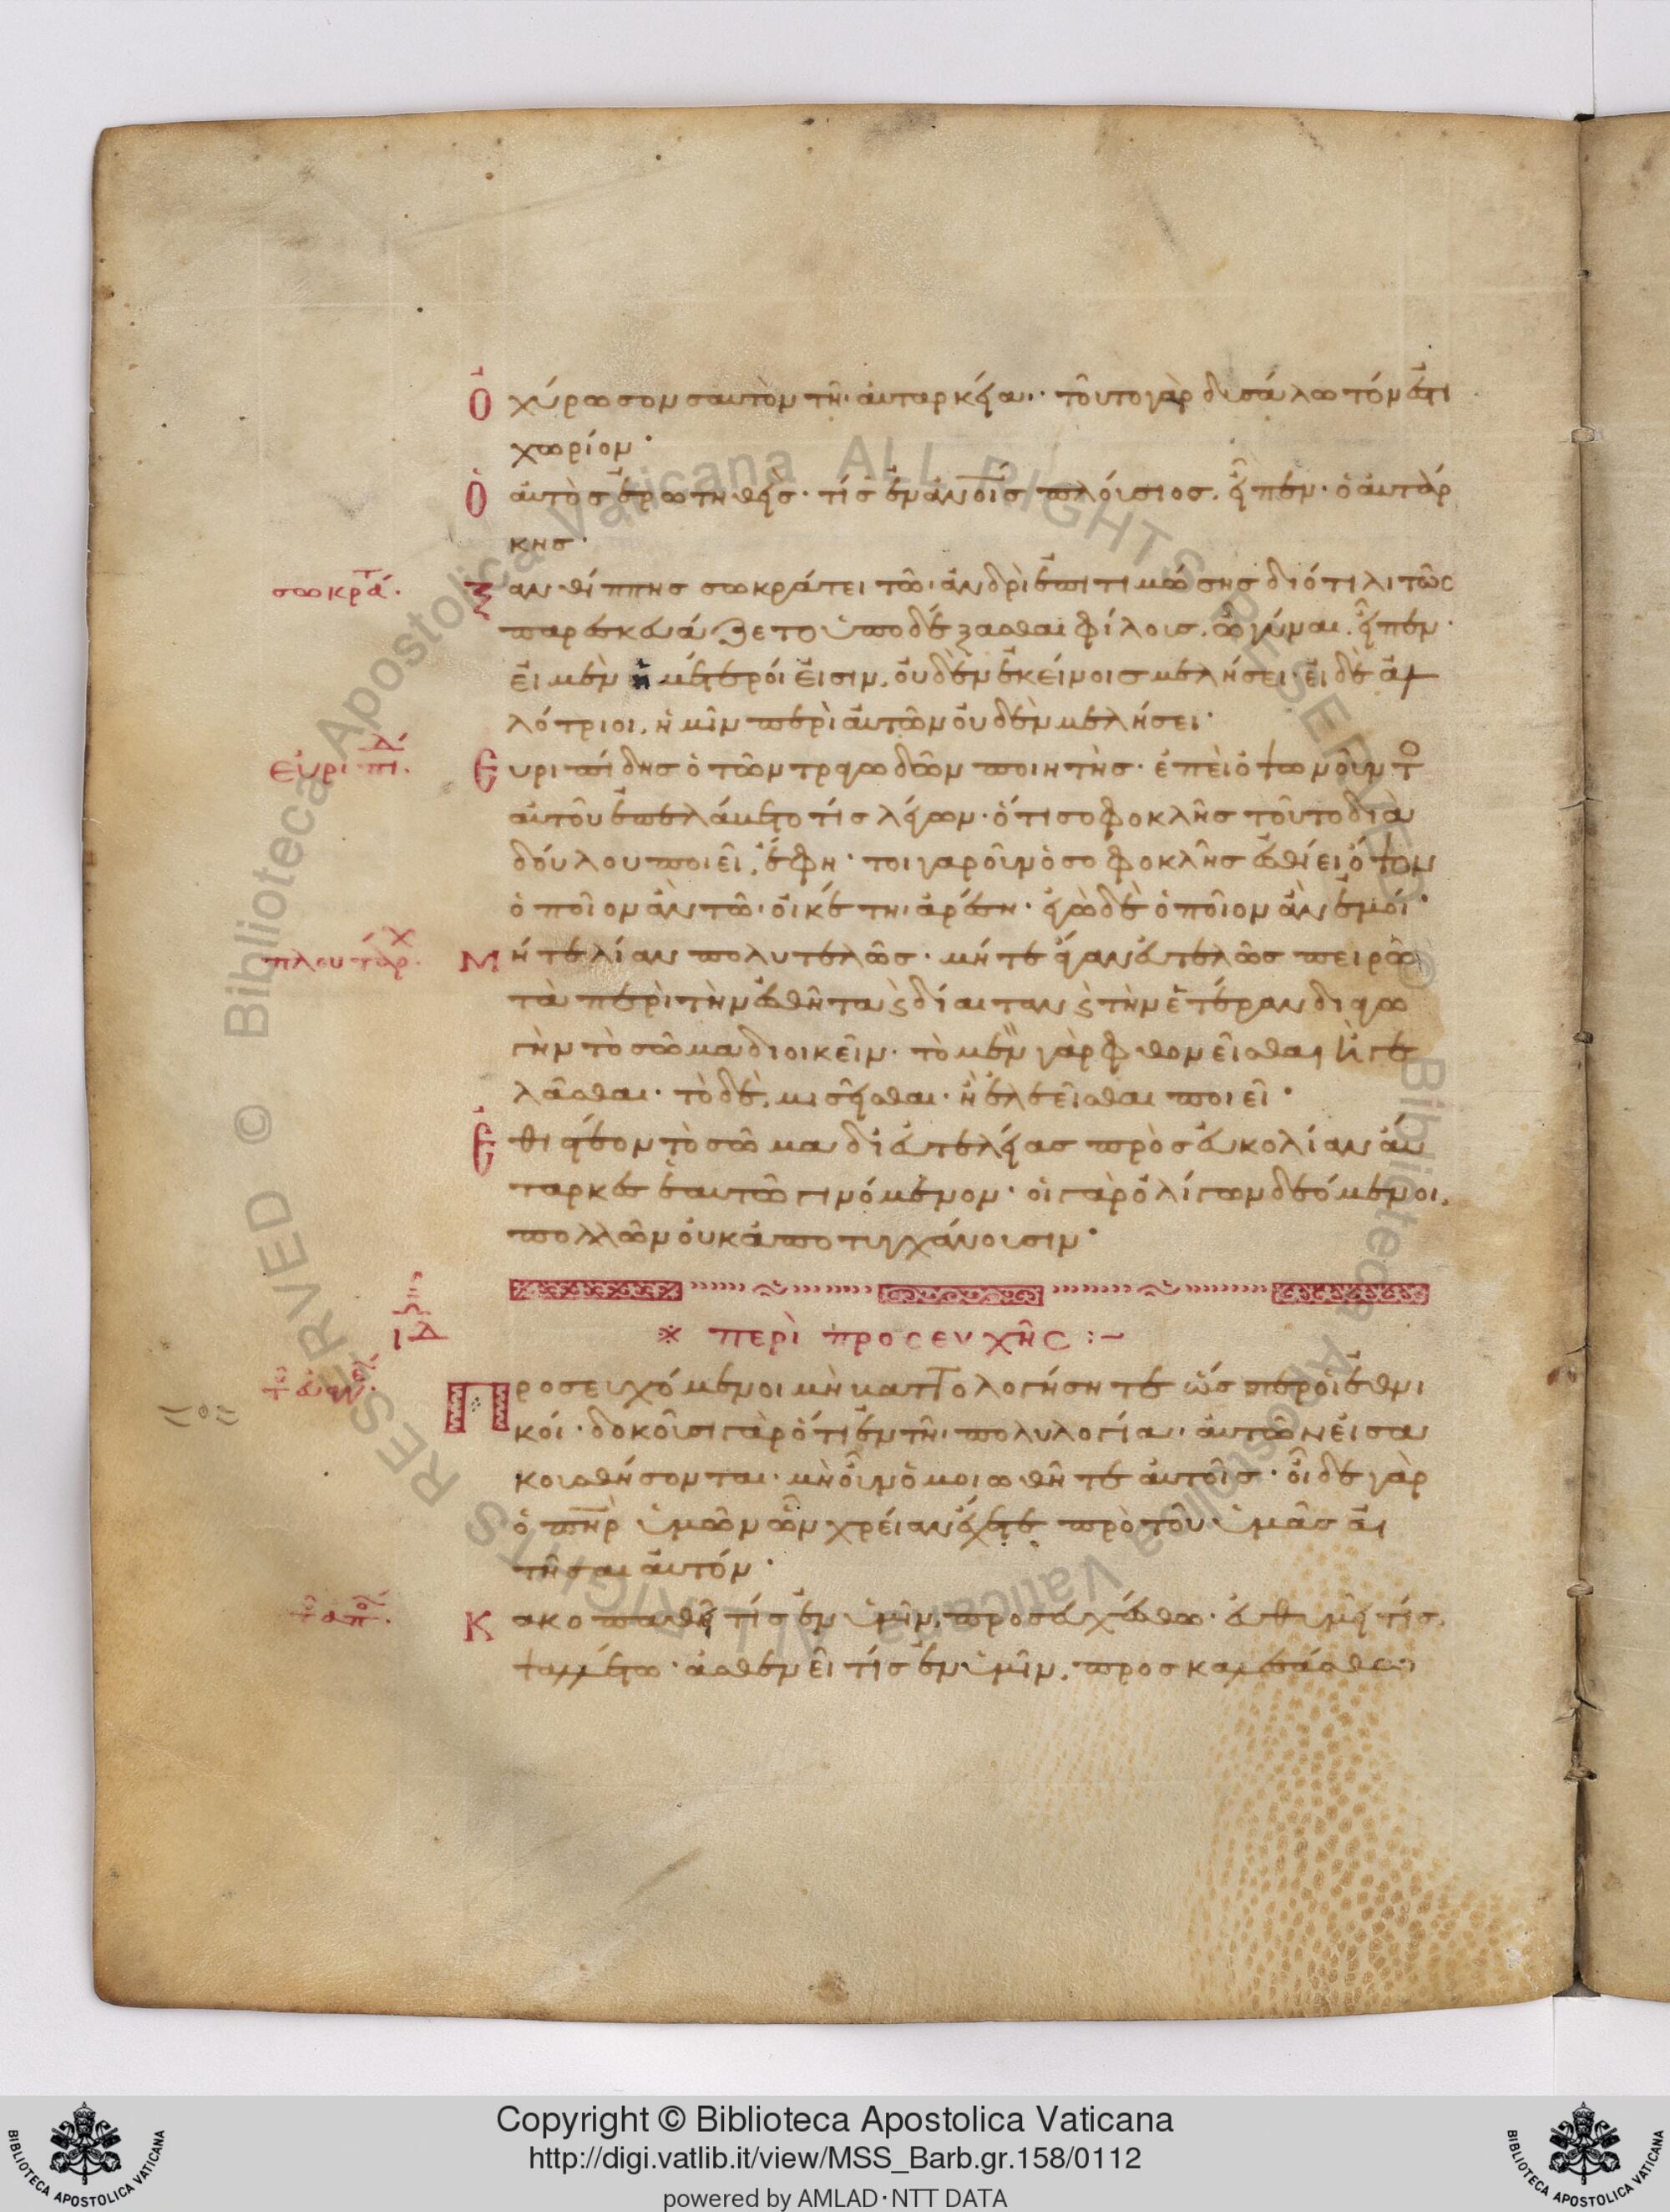 Ὀχύρωσον σαυτὸν τῆ αὐταρκεία· τοῦτο γὰρ δυσάλωτόν ἐστι
χωρίον·
Ὁ αὐτὸς ἐρωτηθεὶς· τίς ἐν ἀνοις πλούσιος, εἶπεν· ὁ αὐτάρ
κης·
σωκρατ
Ξανθίππης σωκράτει τῶ ἀνδρὶ ἐπιτιμώσης διότι λιτῶς
παρεσκευάζετο ὑποδέξασθαι φίλοις, ὦ γύναι, εἶπεν·
εἰ μὲν ἡμέτεροί εἰσιν, οὐδὲν ἐκείνοις μελήσει· εἰ δὲ ἀλ
λότριοι, ἡμῖν περὶ αὐτῶν οὐδὲν μελήσει·
εὐριπιδ
Εὐριπίδης ὁ τῶν τραγωδῶν ποιητὴς· ἐπεὶ ὀψωνοῦντ
αὐτοῦ ἐπελάβετό τις λέγων· ὅτι σοφοκλῆς τοῦτο διὰ
δούλου ποιεῖ, ἔφη· τοιγαροῦν ὁ σοφοκλῆς ἐσθίει ὄψον
ὁποῖον ἂν τῶ οἰκέτη ἀρέση· ἐγὼ δὲ ὁποῖον ἂν ἐμοί·
πλουταρχ
Μήτε λίαν πολυτελῶς· μήτε ἄγαν εὐτελῶς πειρῶ
τὰ περὶ τὴν ἐσθῆτα ϛ δίαιταν ϛ τὴν ἑτέραν διαγω
γὴν τὸ σῶμα διοικεῖν· τὸ μὲν γὰρ φθονεῖσθαι ἢ γε
λᾶσθαι· τὸ δὲ, μισεῖσθαι· ἢ ἐλεεῖσθαι ποιεῖ·
Ἔθιστέον τὸ σῶμα δι' εὐτελείας πρὸς εὐκολίαν αὐ
ταρκες ἑαυτῶ γινόμενον· οἱ γὰρ ὀλίγων δεόμενοι,
πολλῶν οὐκ ἀποτυγχάνουσιν·
ΙΔ
※ περὶ προσευχῆς :~
τοῦ εὐαγ
Προσευχόμενοι μὴ βαττολογήσητε ὥσπερ οἱ ἐθνι
κοί· δοκοῦσι γὰρ ὅτι ἐν τῆ πολυλογία αὐτῶν εἰσα
κουσθήσονται· μὴ οὖν ὁμοιωθῆτε αὐτοῖς· οἶδε γὰρ
ὁ πηρ ὑμῶν ὧν χρείαν ἔχετε πρὸ τοῦ ὑμᾶς αἰ
τῆσαι αὐτόν·
τοῦ αποσ
Κακοπαθεῖ τίς ἐν ὑμῖν, προσευχέσθω· εὐθυμεῖ τίς,
ψαλλέτω· ἀσθενεῖ τίς ἐν ὑμῖν, προσκαλεσάσθω
Copyright © Biblioteca Apostolica Vaticana
http://digi.vatlib.it/view/MSS_Barb.gr.158/0112
powered by AMLAD·NTT DATA
BIBLIOTECA APOSTOLICA VATICANA
BIBLIOTECA APOSTOLICA VATICANA
© Biblioteca Apostolica Vaticana ALL RIGHTS RESERVED
© Biblioteca Apostolica Vaticana ALL RIGHTS RESERVED